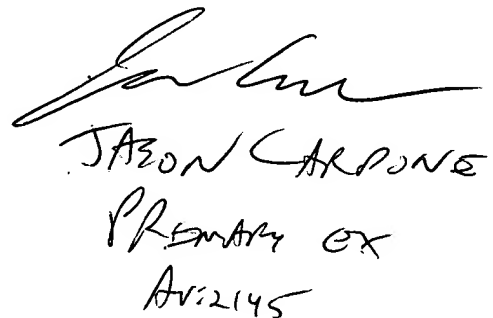 JASON CARDONE
PRIMARY EX
AU:2145